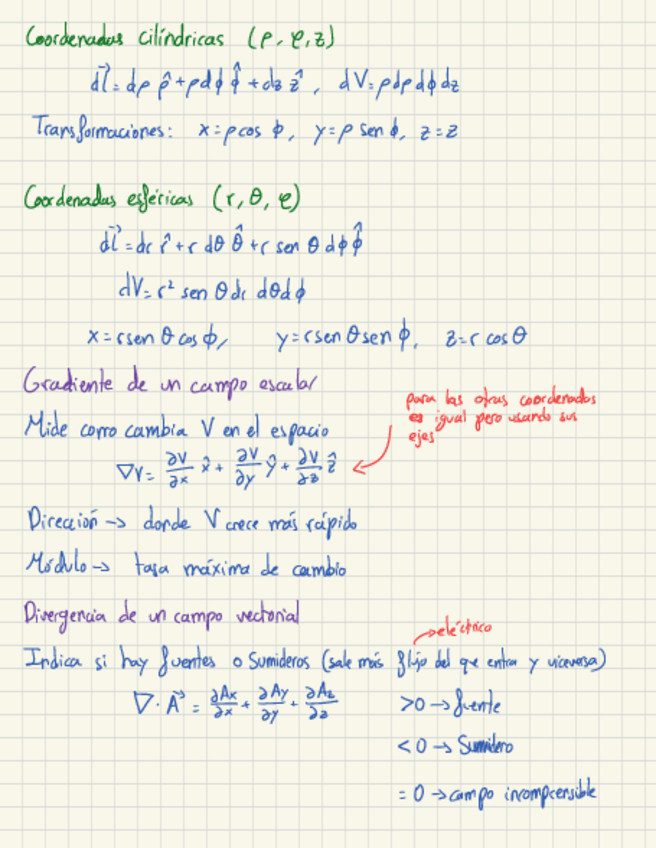 Coordenadas cilíndricas (ρ, φ, z)
dl⃗ = dρ ρ̂ + ρdϕ ϕ̂ + dz ẑ, dV = ρdρdϕdz
Transformaciones: x = ρcos ϕ, y = ρ sen ϕ, z = z
Coordenadas esféricas (r, θ, φ)
dl⃗ = dr r̂ + r dθ θ̂ + r sen θ dϕ ϕ̂
dV = r² sen θ dr dθ dϕ
x = rsen θ cos ϕ, y = rsen θ sen ϕ, z = r cos θ
Gradiente de un campo escalar
para las otras coordenadas
es igual pero usando sus
ejes
Mide como cambia V en el espacio
∇V = ∂V/∂x x̂ + ∂V/∂y ŷ + ∂V/∂z ẑ
Dirección → donde V crece más rápido
Módulo → tasa máxima de cambio
Divergencia de un campo vectorial
eléctrico
Indica si hay fuentes o Sumideros (sale más flujo del que entra y viceversa)
∇ · A⃗ = ∂Ax/∂x + ∂Ay/∂y + ∂Az/∂z
>0 → fuente
<0 → Sumidero
= 0 → campo incompresible